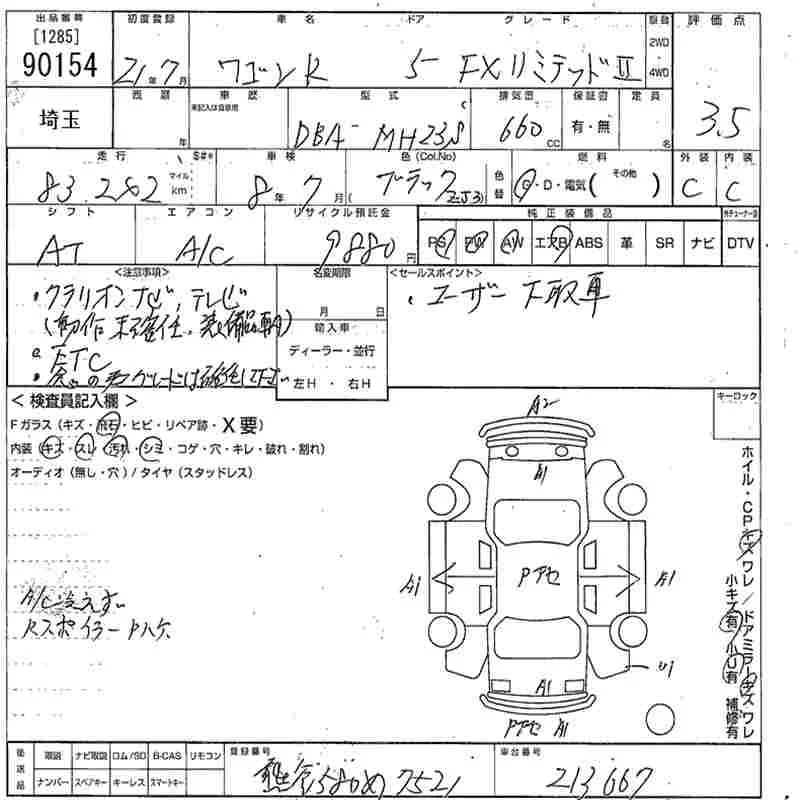 出品番号 初度登録 車名 ドア グレード 駆動 評価点
[1285]
90154 21年7月 ワゴンR 5 FXリミテッドⅡ 2WD 4WD 3.5
車歴 型式 排気量 保証書 定員
未記入は自家用
埼玉 年 DBA-MH23S 660cc 有・無 名
走行 S#* 車検 色(Col.No) 燃料 外装 内装
83,282 マイル km 8年7月 ブラック(ZJ3) 色替 G・D・電気( その他 ) C C
シフト エアコン リサイクル預託金 純正装備品 外チューナー
AT A/C 9880円 PS PW AW エアB ABS 革 SR ナビ DTV
<注意事項> 名変期限 <セールスポイント>
・クラリオンナビ、テレビ 月 日 ・ユーザー下取車
輸入車
・ETC ディーラー・並行
左H・右H
<検査員記入欄> キーロック
Fガラス(キズ・飛石・ヒビ・リペア跡・X要)
内装(キズ・スレ・汚れ・シミ・コゲ・穴・キレ・破れ・割れ)
オーディオ(無し・穴)/タイヤ(スタッドレス)
A2
A1
A1 Pアセ A1
A/C冷えず
RスポイラーPハゲ
U1
A1
Pアセ A1
ホイル・CPキズワレ/ドアミラーキズワレ
小キズ有 小U有 補修有
後送品 取説 ナビ取説 ロム/SD B-CAS リモコン 登録番号 車台番号
ナンバー スペアキー キーレス スマートキー 580 め 7521 213667